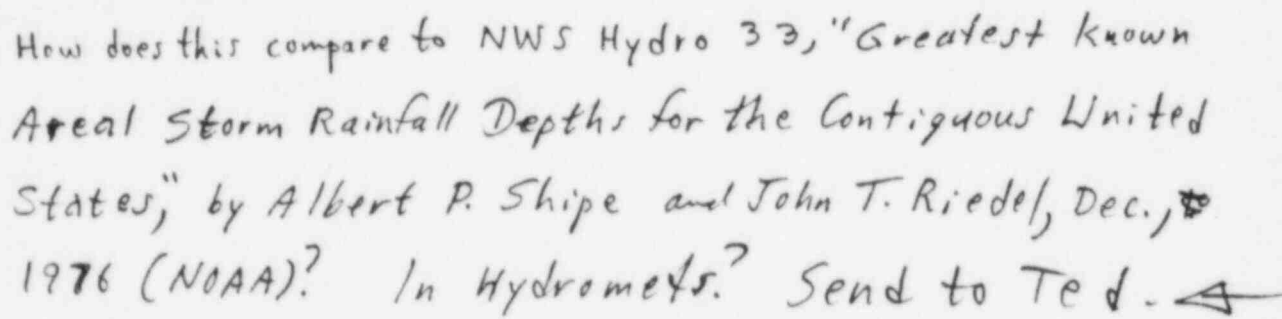 How does this compare to NWS Hydro 33, "Greatest known
Areal Storm Rainfall Depths for the Contiguous United
States," by Albert P. Shipe and John T. Riedel, Dec.,
1976 (NOAA)? In Hydromets.? Send to Ted.